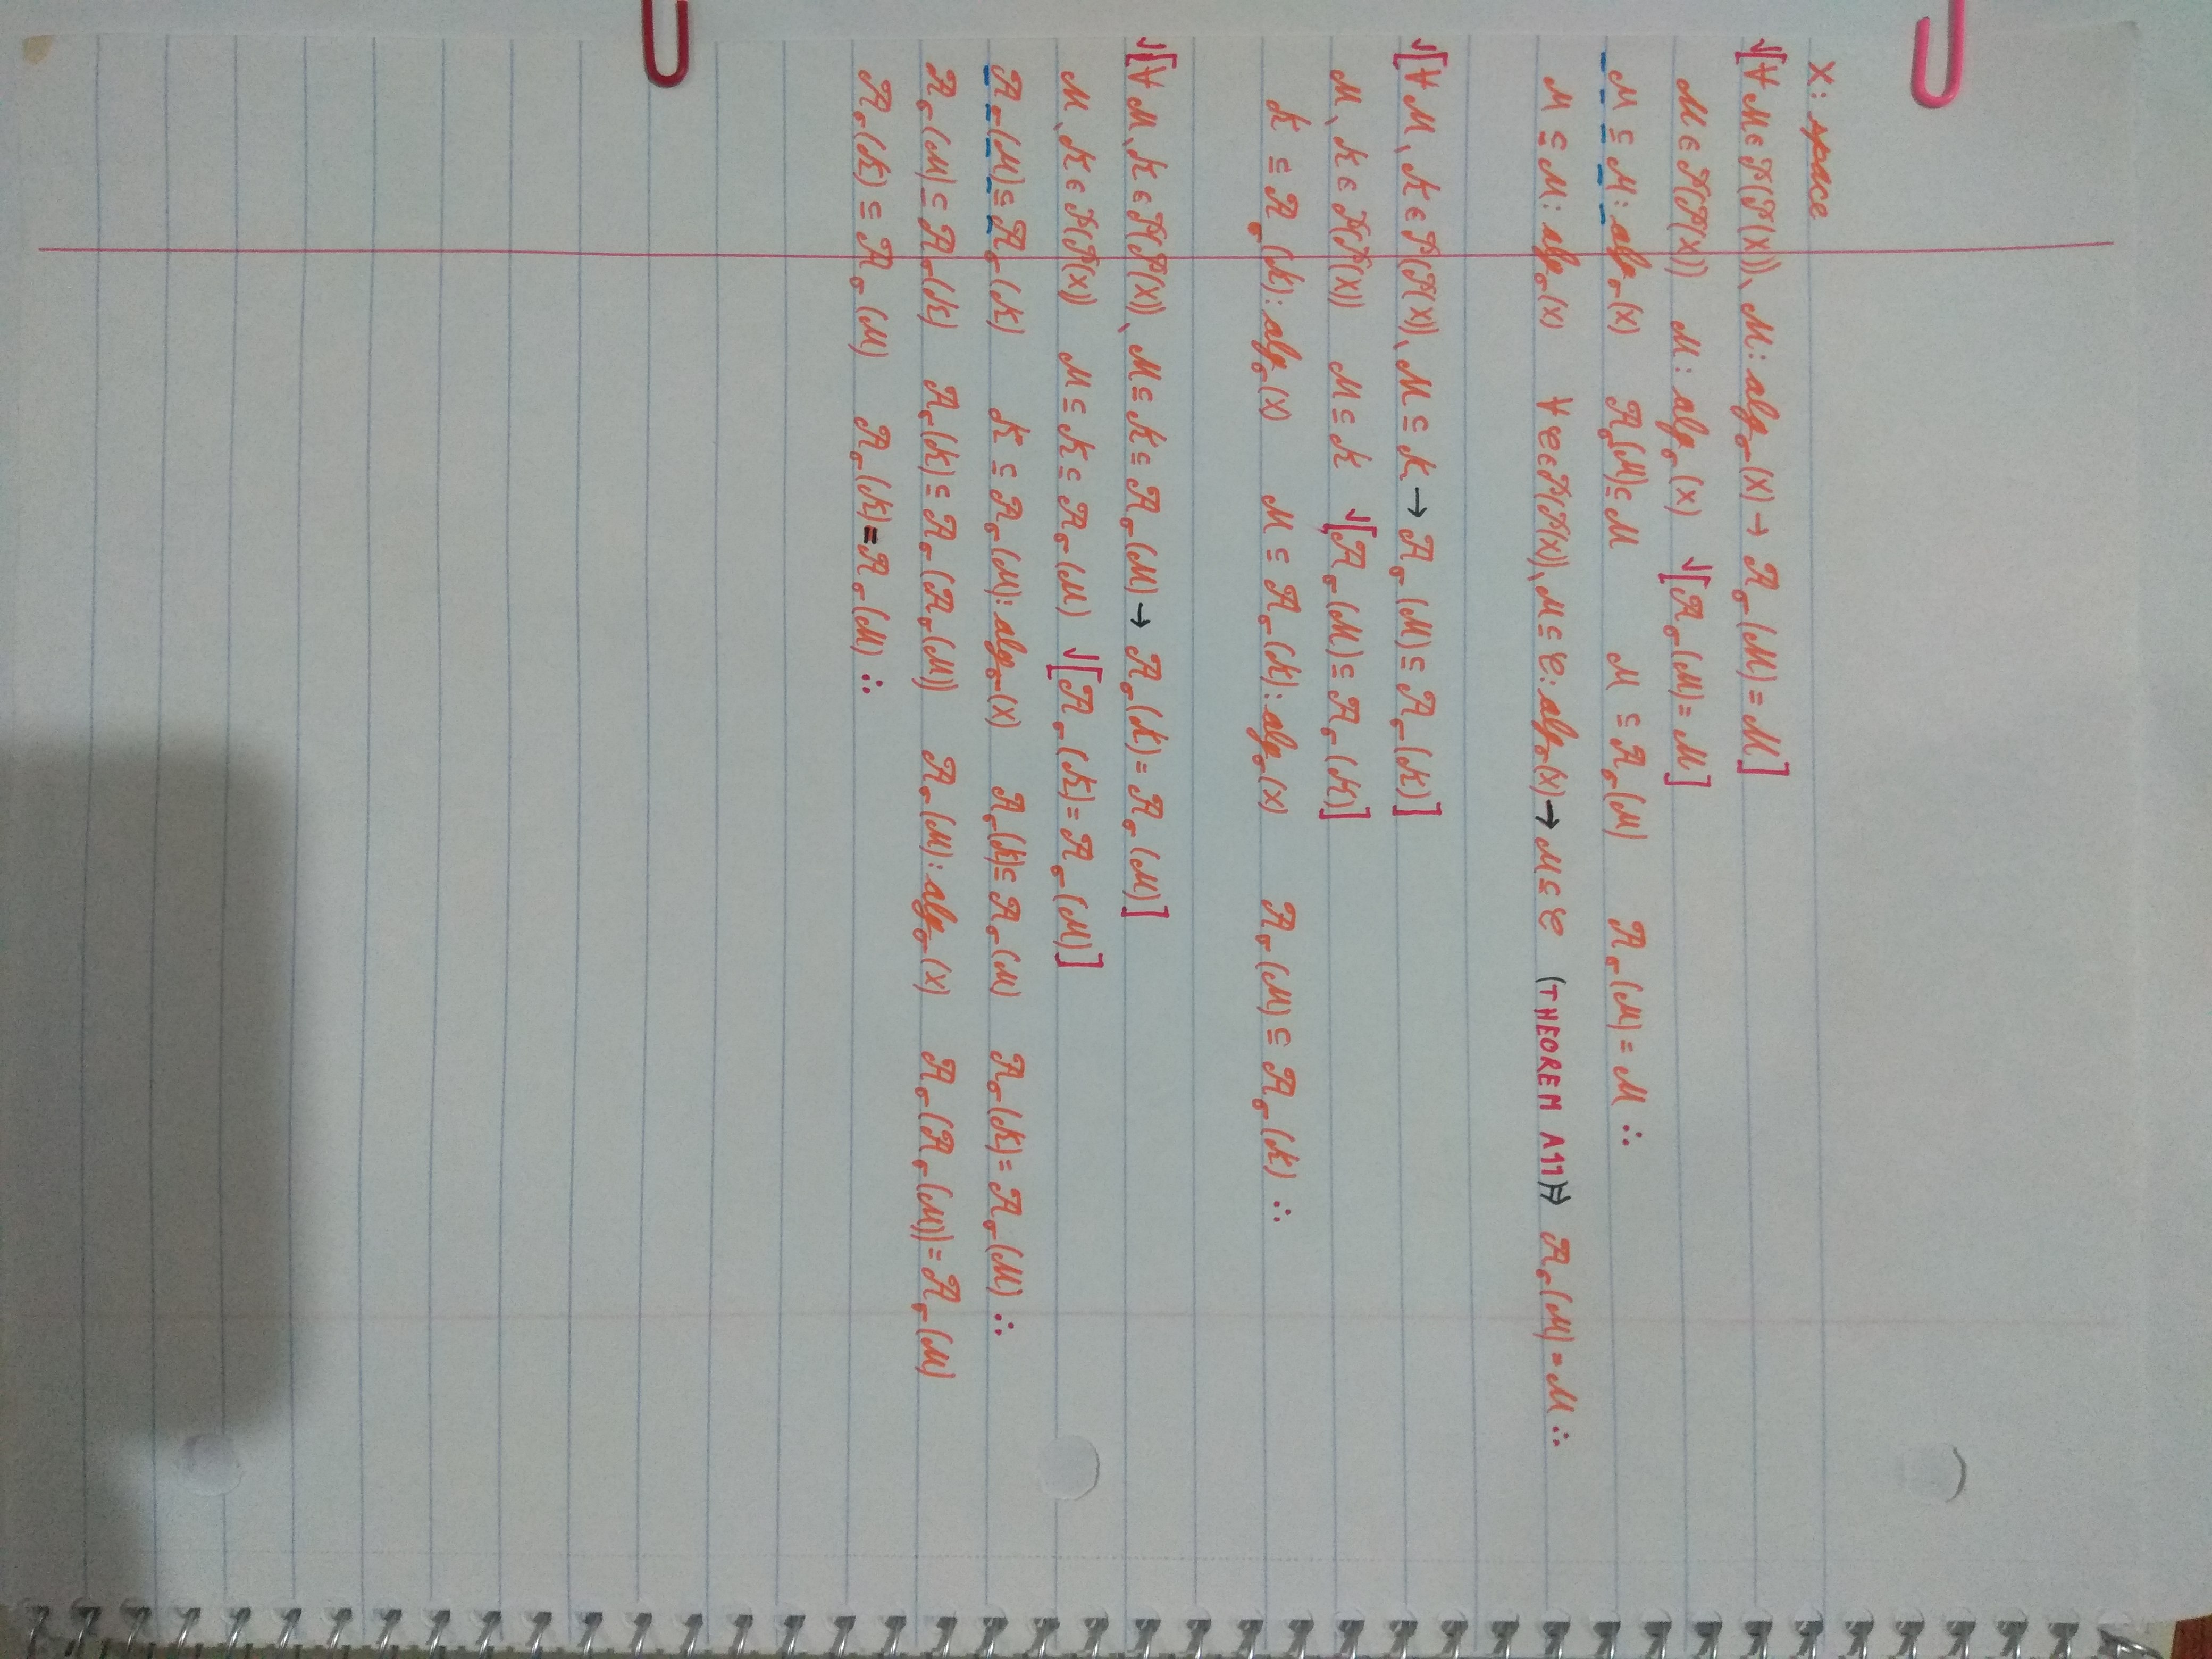 X: space
√[∀ M ∈ P(P(X)), M: alg_σ(X) → A_σ(M) = M]
M ∈ P(P(X)) M: alg_σ(X) √[A_σ(M) = M]
M ⊆ M: alg_σ(X) A_σ(M) ⊆ M M ⊆ A_σ(M) A_σ(M) = M ∴
M ⊆ M: alg_σ(X) ∀ C ∈ P(P(X)), M ⊆ C: alg_σ(X) → M ⊆ C (THEOREM A11) ⇒ A_σ(M) = M ∴
√[∀ M, K ∈ P(P(X)), M ⊆ K → A_σ(M) ⊆ A_σ(K)]
M, K ∈ P(P(X)) M ⊆ K √[A_σ(M) ⊆ A_σ(K)]
K ⊆ A_σ(K): alg_σ(X) M ⊆ A_σ(K): alg_σ(X) A_σ(M) ⊆ A_σ(K) ∴
√[∀ M, K ∈ P(P(X)), M ⊆ K ⊆ A_σ(M) → A_σ(K) = A_σ(M)]
M, K ∈ P(P(X)) M ⊆ K ⊆ A_σ(M) √[A_σ(K) = A_σ(M)]
A_σ(M) ⊆ A_σ(K) K ⊆ A_σ(M): alg_σ(X) A_σ(K) ⊆ A_σ(M) A_σ(K) = A_σ(M) ∴
A_σ(M) ⊆ A_σ(K) A_σ(K) ⊆ A_σ(A_σ(M)) A_σ(M): alg_σ(X) A_σ(A_σ(M)) = A_σ(M)
A_σ(K) ⊆ A_σ(M) A_σ(K) = A_σ(M) ∴